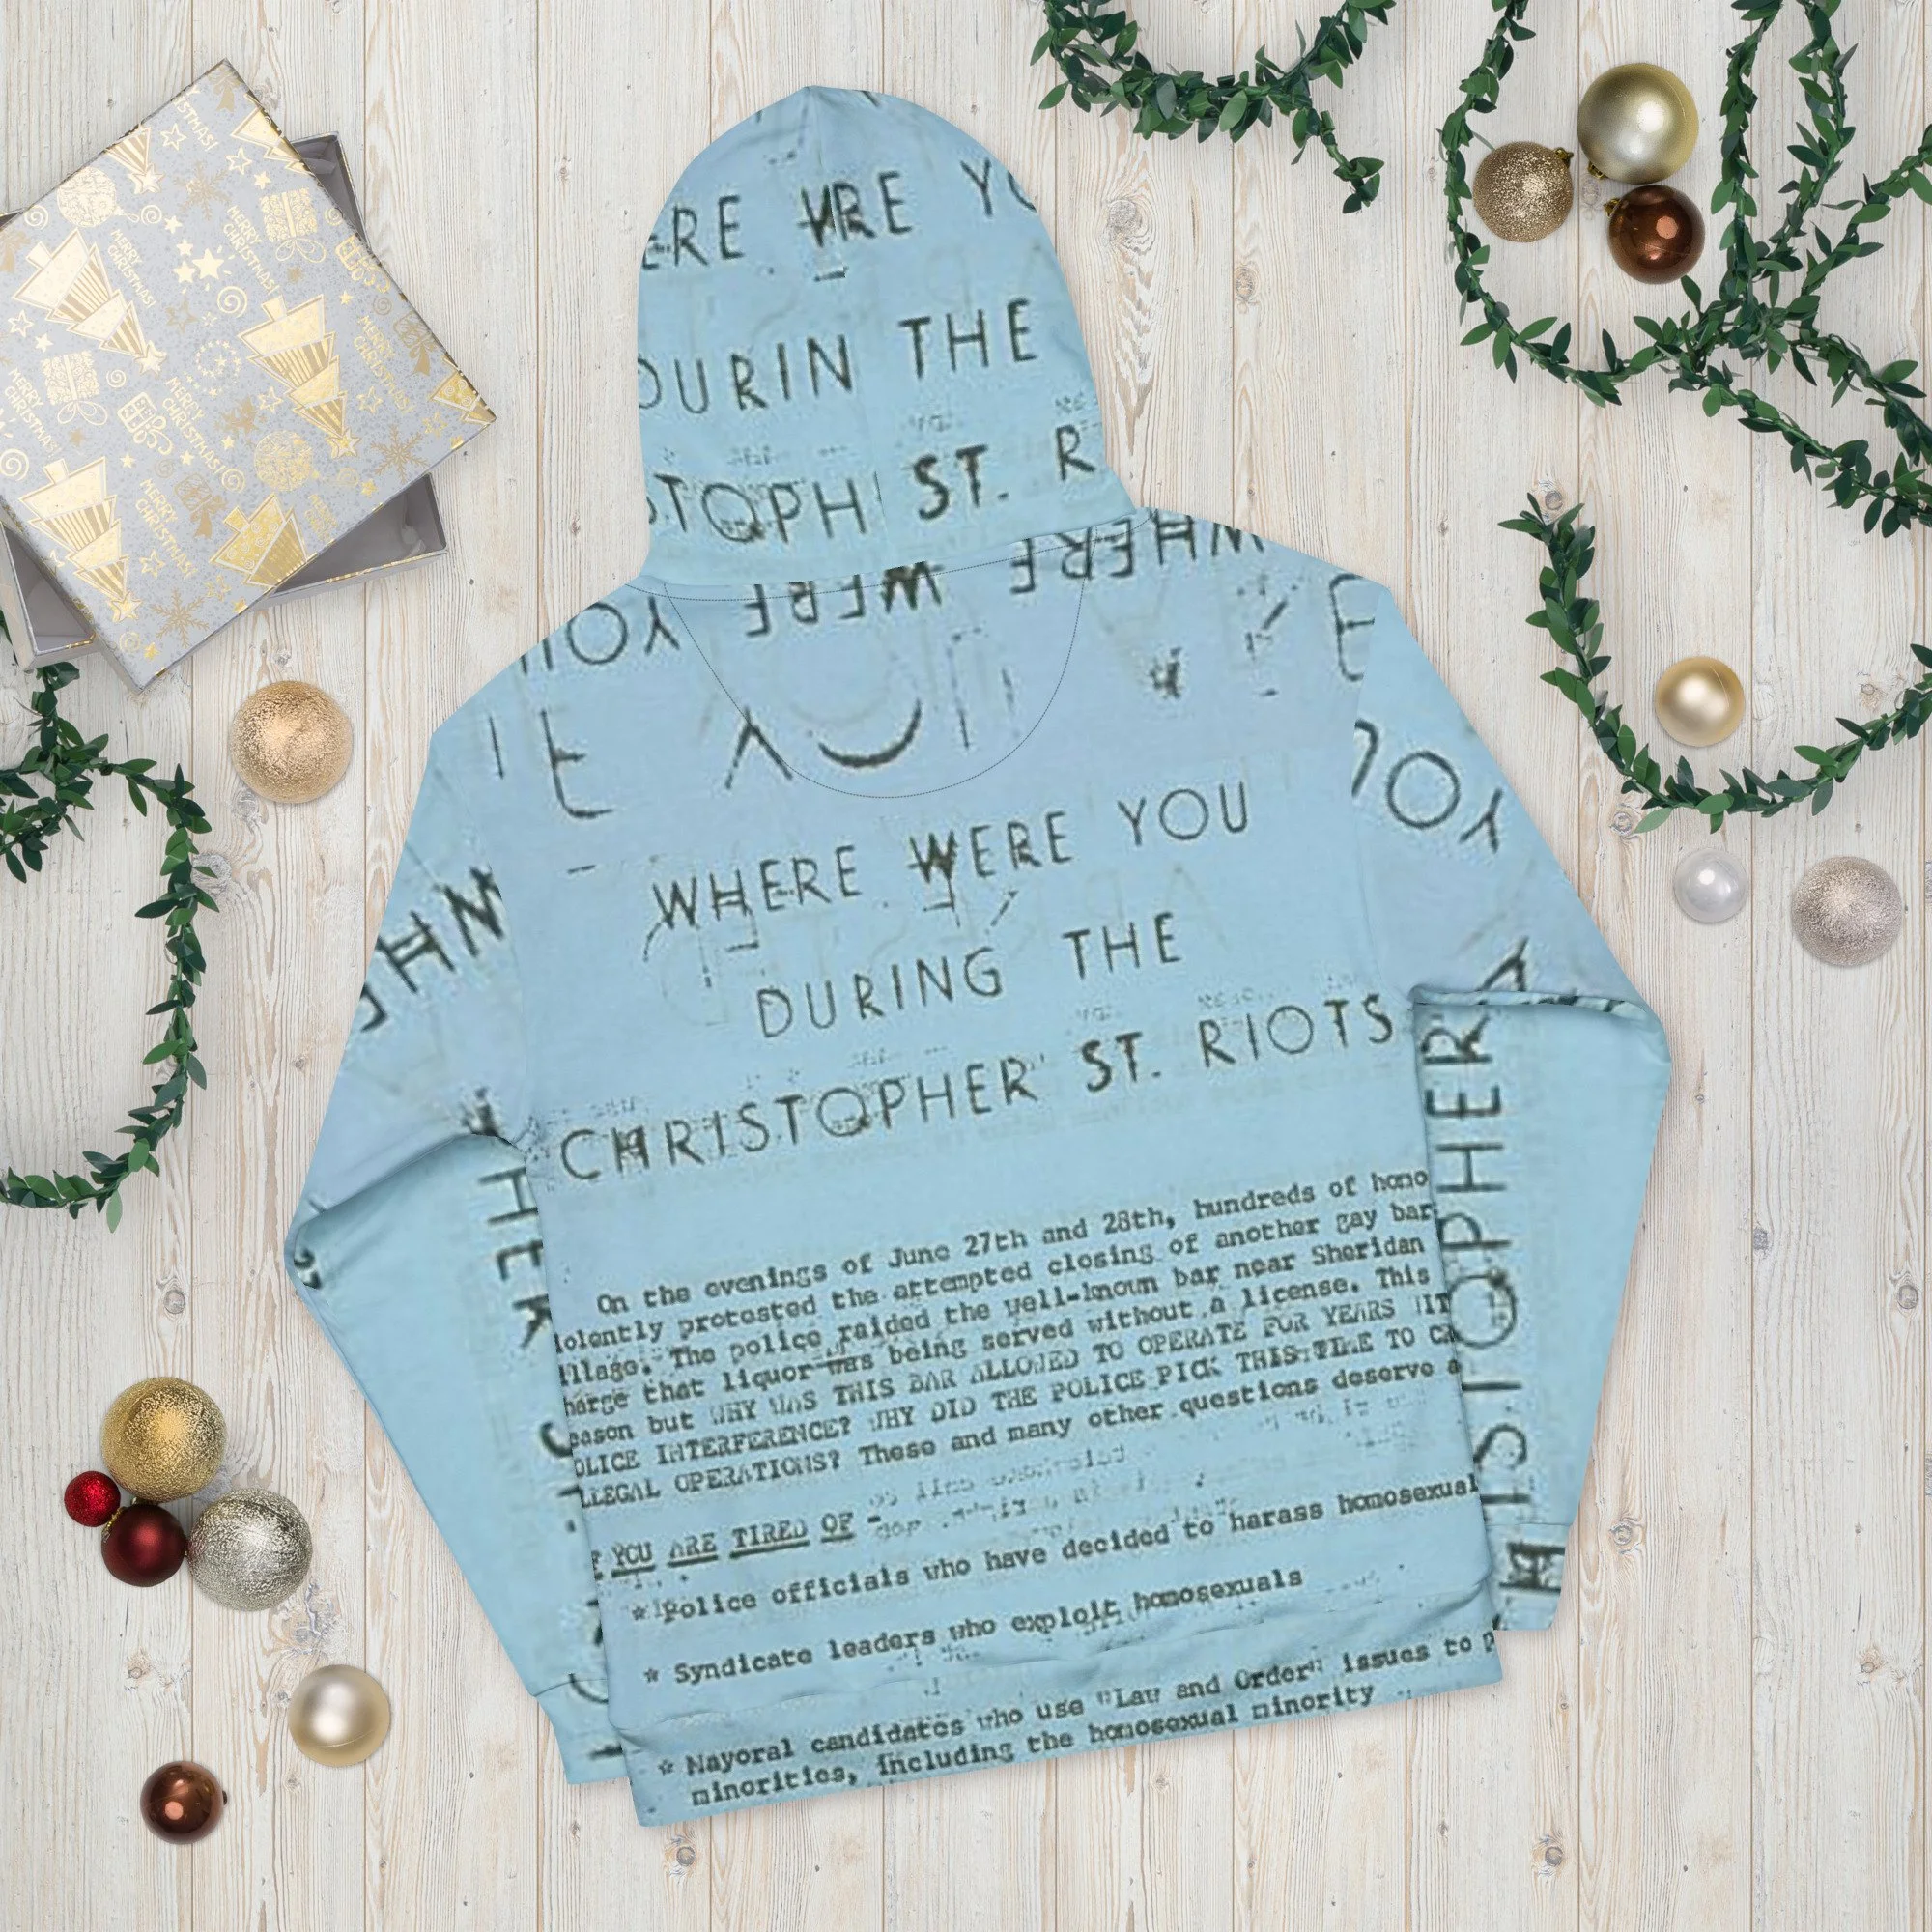 MERRY CHRISTMAS!
MERRY CHRISTMAS!
MERRY CHRISTMAS!
MERRY CHRISTMAS!
MERRY CHRISTMAS!
ERE
THE
ST. R
WHERE WERE YOU
WHERE WERE YOU
DURING THE
CHRISTOPHER ST. RIOTS
On the evenings of June 27th and 28th, hundreds of homo
iolently protested the attempted closing of another gay bar
illage. The police raided the well-known bar near Sheridan
harge that liquor was being served without a license. This
eason but WHY WAS THIS BAR ALLOWED TO OPERATE FOR YEARS WIT
OLICE INTERFERENCE? WHY DID THE POLICE PICK THIS TIME TO
LLEGAL OPERATIONS? These and many other questions deserve a
F YOU ARE TIRED OF -
* Police officials who have decided to harass homosexual
* Syndicate leaders who exploit homosexuals
* Mayoral candidates who use "Law and Order" issues to p
minorities, including the homosexual minority
YOU
WHE
CHRISTOPHER